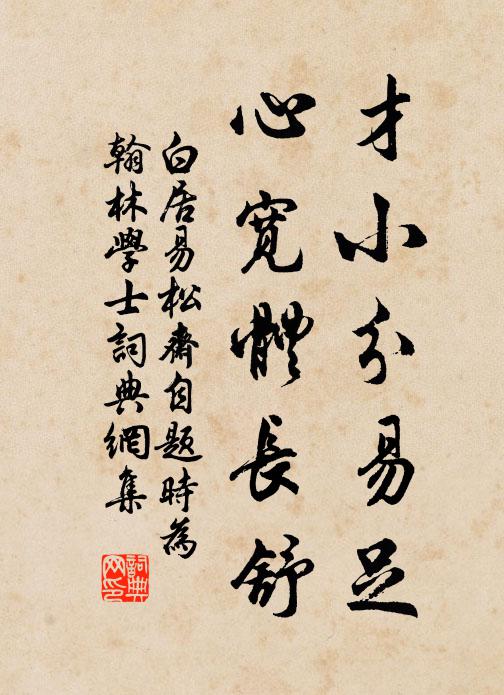 才小分易足
心寬體長舒
白居易松齋自題時為
翰林學士詞典網集
詞典
网印